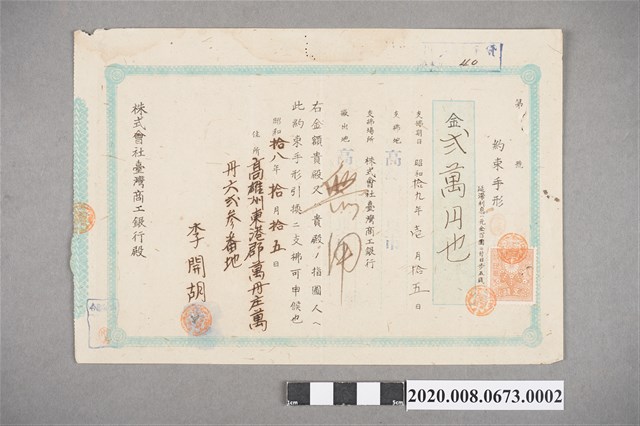 第 號
約束手形
金弐萬円也
支拂期日 昭和拾九年壱月拾五日
支拂地 高
支拂場所 株式會社臺灣商工銀行
振出地 高
無用
右金額貴殿又ハ貴殿ノ指圖人ヘ
此約束手形引換ニ支拂可申候也
昭和拾八年拾月拾五日
住所 高雄州東港郡萬丹庄萬
丹六弐参番地
李開胡
株式會社臺灣商工銀行殿
40
2020.008.0673.0002